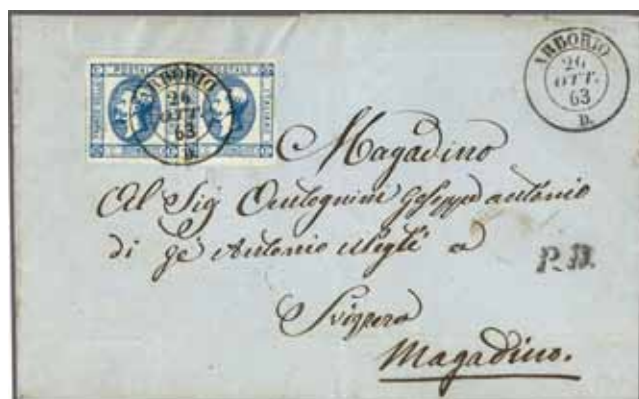 ARBORIO
26
OTT.
63
D.
ARBORIO
26
OTT.
63
D.
Magadino
Al Sig Antognini antonio
di Antonio a
P.D.
Svizzera
Magadino.